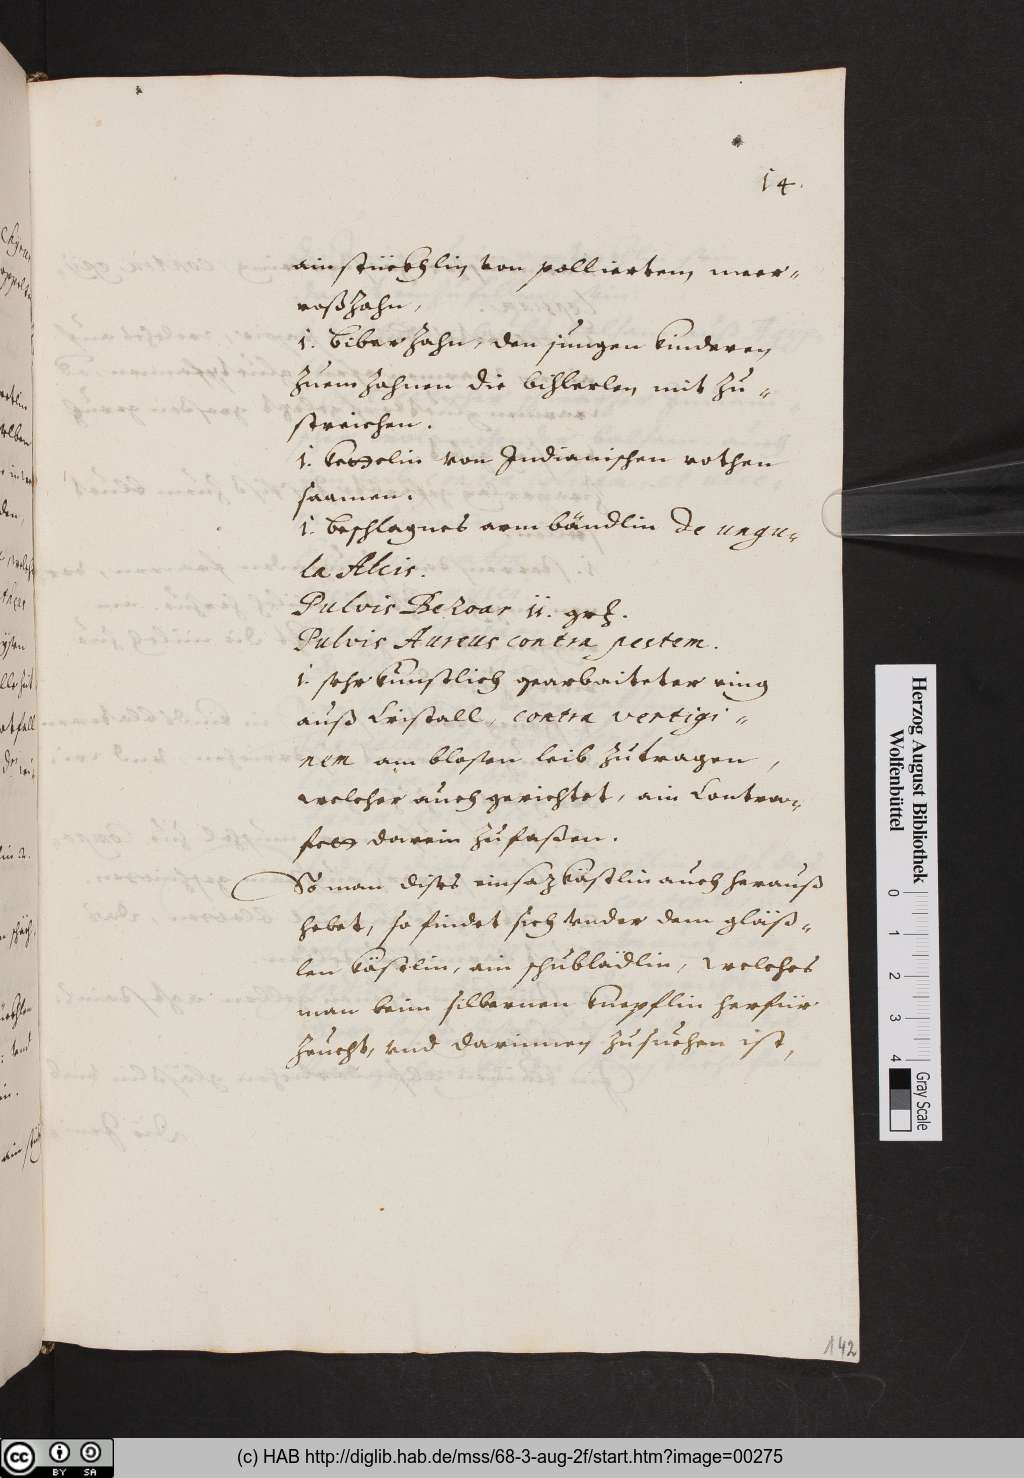 14.
ain stückhlin von polliertem meer-
roßzahn,
1. biberzahn, den jungen kinderen
zuem zahnen die bihlerlen mit zu-
streichen.
1. kettelin von Indianischen rothen
saamen.
1. beschlagnes armbändlin De ungu-
la Alcis.
Pulvis Bezoar ii. grz.
Pulvis Aureus contra pestem.
1. sehr kunstlich gearbaiteter ring
auß Cristall, contra vertigi-
nem am blosen leib zutragen,
welcher auch gerichtet, ain Contra-
fett darein zufaßen.
So man dises einsazkästlin auch herauß
hebet, so findet sich vnder dem gläß-
len kästlin, ain schublädlin, welches
man beim silbernen knepflin herfür
zeucht, vnd darinnen zusuchen ist,
142
Herzog August Bibliothek
Wolfenbüttel
0 1 2 3 4
Gray Scale
cc BY SA
(c) HAB http://diglib.hab.de/mss/68-3-aug-2f/start.htm?image=00275